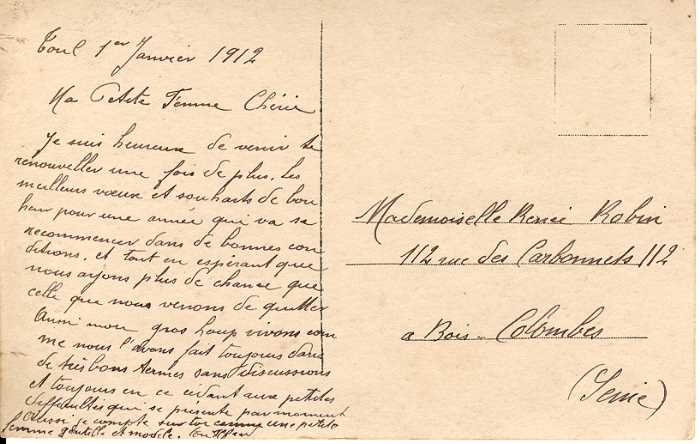 Toul 1er Janvier 1912
Ma Petite Femme Chérie
Je suis heureux de venir te
renouveller une fois de plus, les
meilleurs vœux et souhaits de bon
heur pour une année qui va se
recommencer dans de bonnes con
ditions. et tout en espérant que
nous ayons plus de chance que
celle que nous venons de quitter
Aussi mon gros loup vivons com
me nous l'avons fait toujours dans
de très bons termes sans discussions
et toujours en ce cidant aux petites
difficultés qui se présente par moment
Aussi je compte sur toi comme une petite
femme gentille et modèle.
Mademoiselle Renée Robin
112 rue des Carbonnets 112
a Bois - Colombes
(Seine)